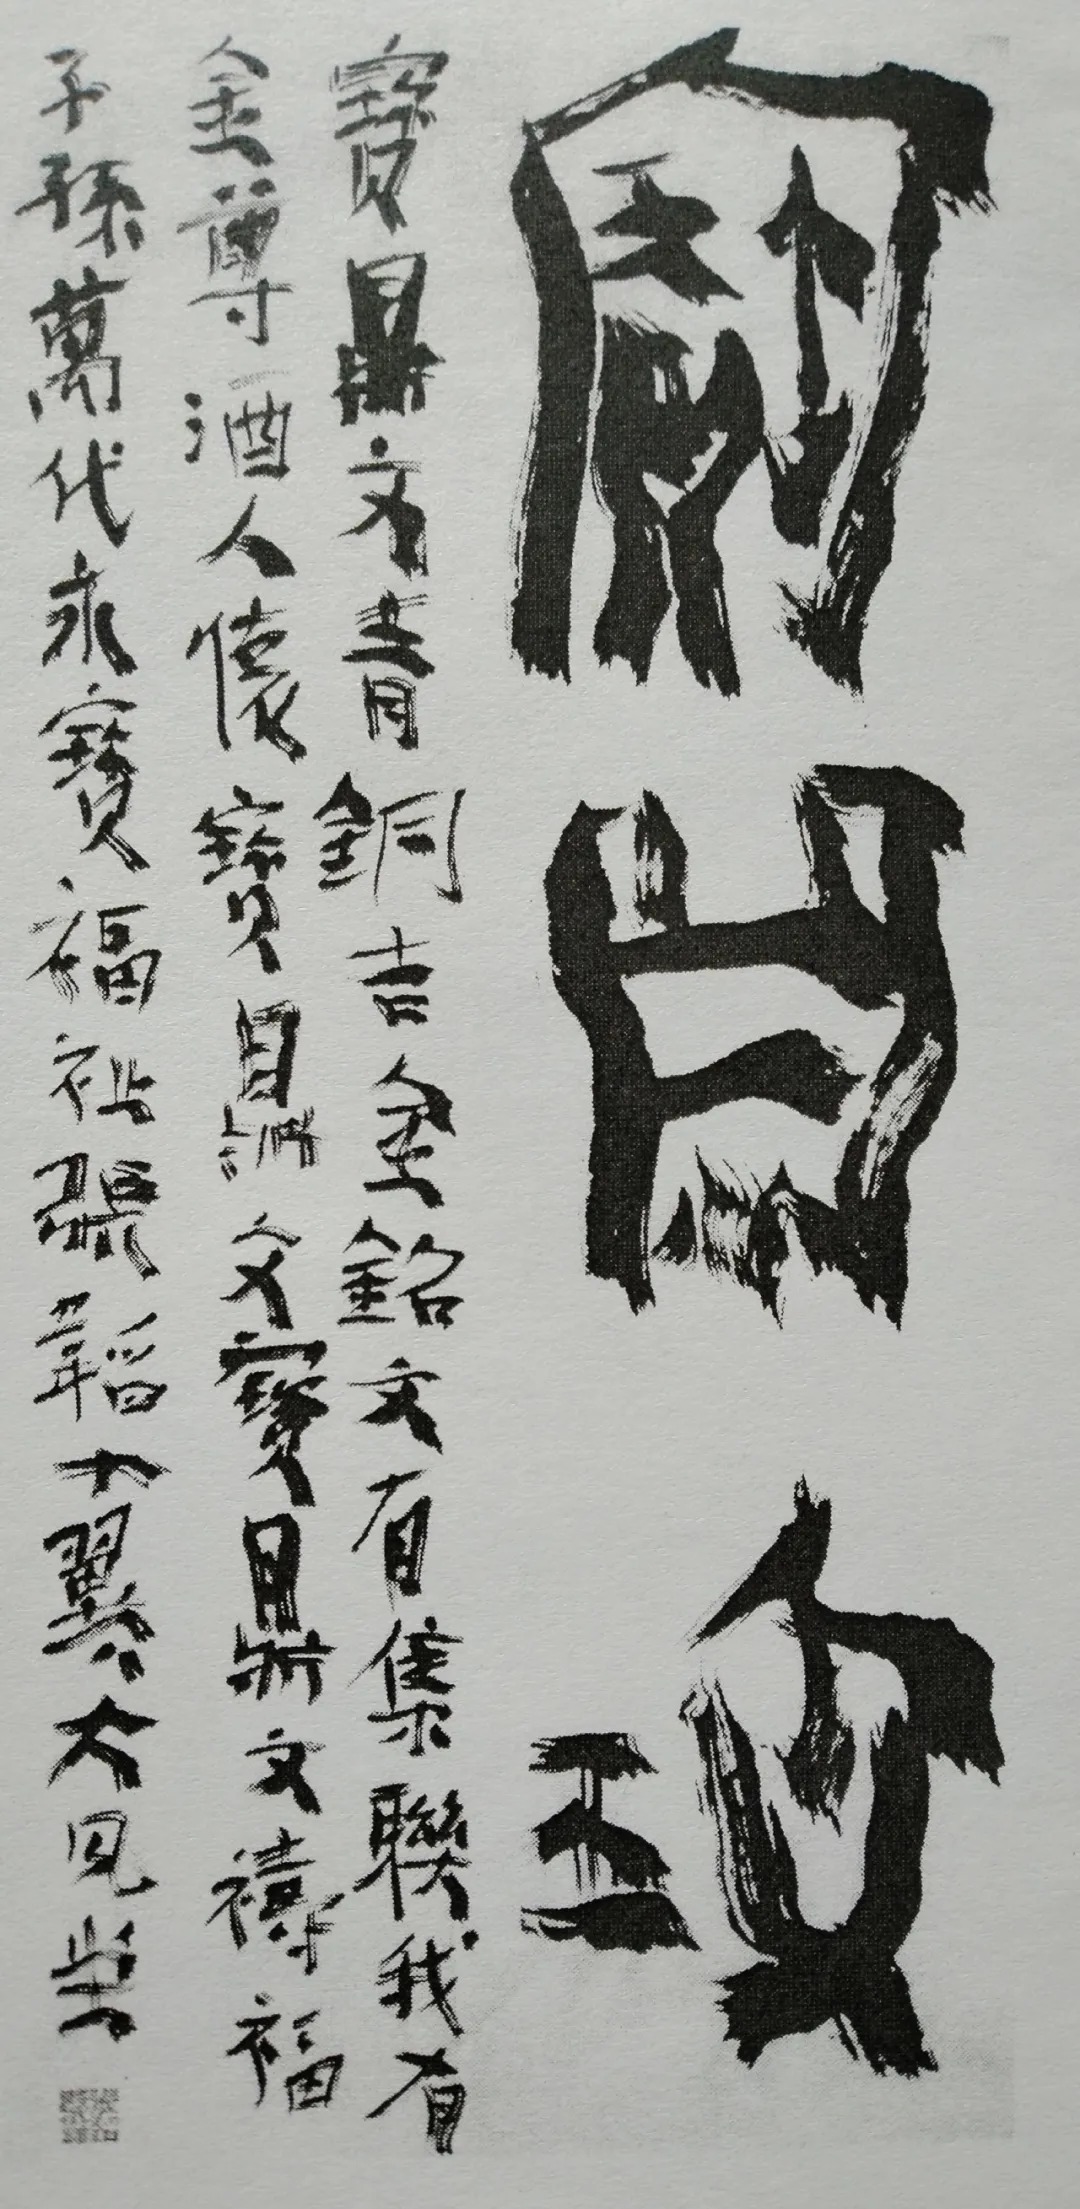 寶鼎文
寶鼎文青銅吉金銘文有集聯我有
金尊酒人懷寶鼎文寶鼎文禱福
子孫萬代永寶福祉張韜翼大見堂